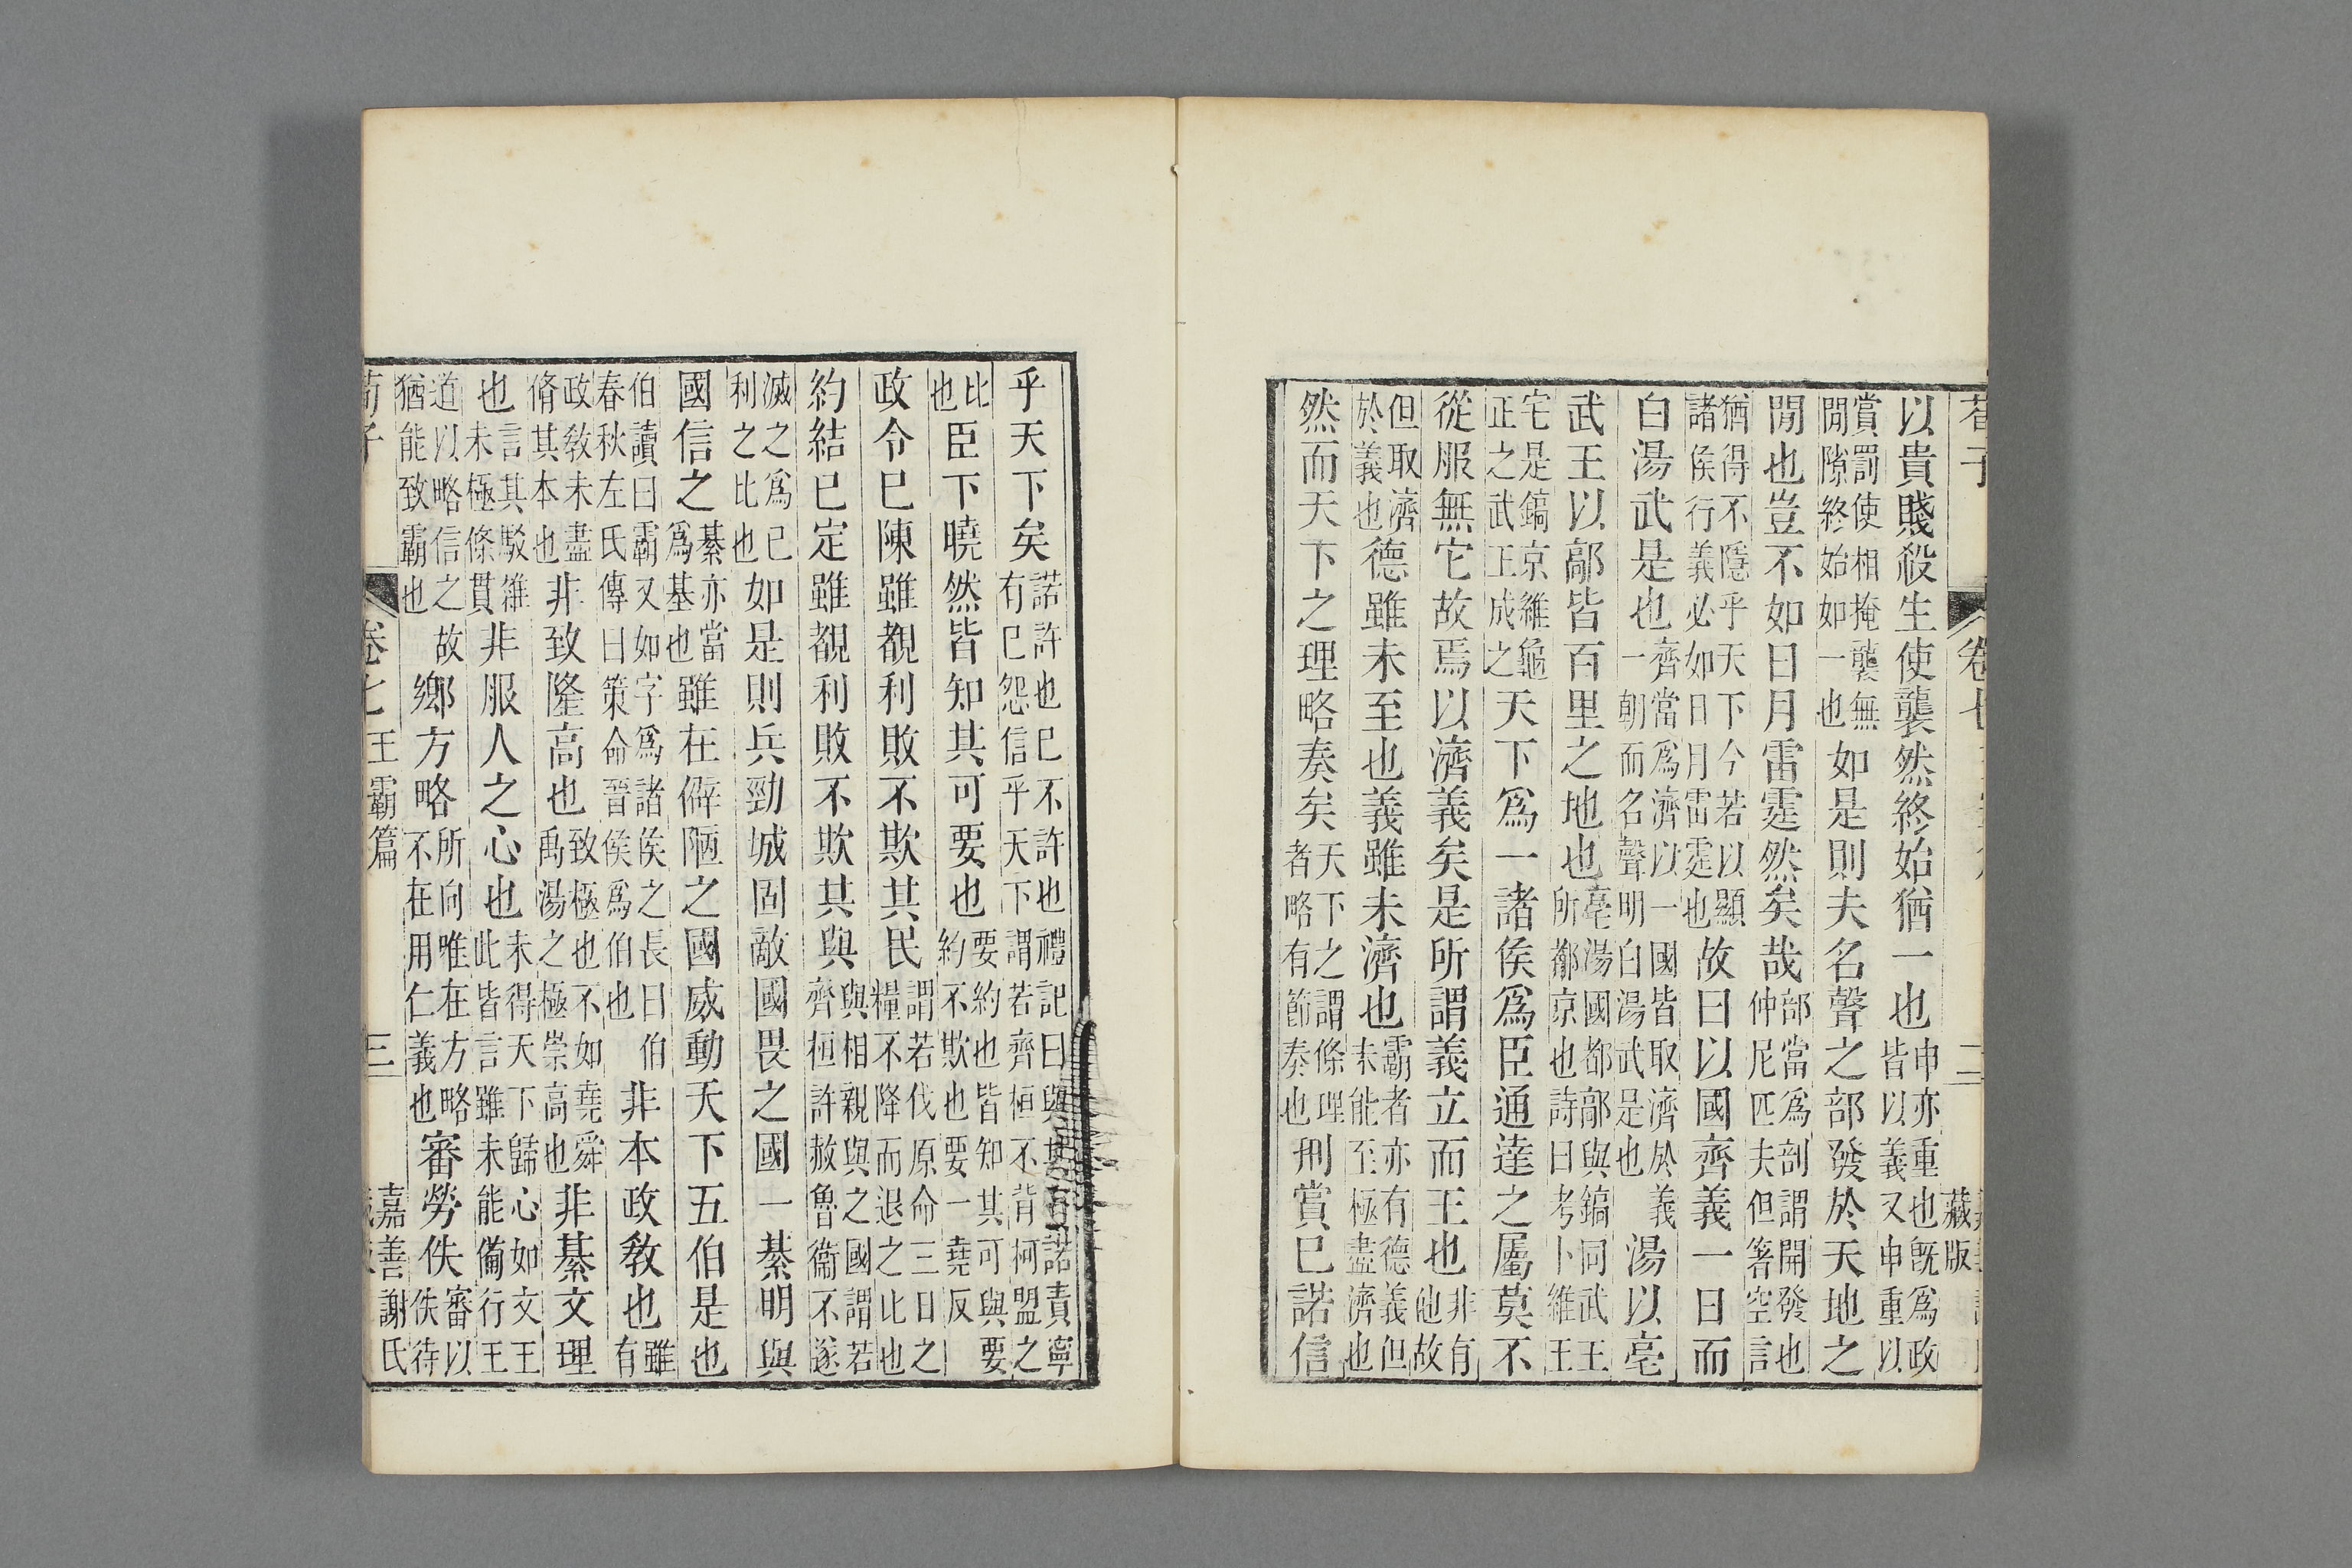 荀子 卷七 二 藏版
以貴賤殺生使襲然終始猶一也申亦重也旣爲政皆以義又申重以
賞罰使相掩襲無閒隙終始如一也如是則夫名聲之部發於天地之
閒也豈不如日月雷霆然矣哉部當爲剖謂開發也仲尼匹夫但箸空言
猶得不隱乎天下今若以顯諸侯行義必如日月雷霆也故曰以國齊義一日而
白湯武是也齊當爲濟以一國皆取濟於義一朝而名聲明白湯武是也湯以亳
武王以鄗皆百里之地也亳湯國都鄗與鎬同武王所都京也詩曰考卜維王
宅是鎬京維龜正之武王成之天下爲一諸侯爲臣通達之屬莫不
從服無它故焉以濟義矣是所謂義立而王也非有他故
但取濟於義也德雖未至也義雖未濟也霸者亦有德義但未能至極盡濟也
然而天下之理略奏矣天下之謂條理者略有節奏也刑賞已諾信
乎天下矣諾許也已不許也禮記曰與其有諾責寧有已怨信乎天下謂若齊桓不背柯盟之
比也臣下曉然皆知其可要也要約也皆知其可與要約不欺也要一堯反
政令已陳雖覩利敗不欺其民謂若伐原命三日之糧不降而退之比也
約結已定雖覩利敗不欺其與與相親與之國謂若齊桓許赦魯衞不遂
滅之爲已利之比也如是則兵勁城固敵國畏之國一綦明與
國信之綦亦當爲基也雖在僻陋之國威動天下五伯是也
伯讀曰霸又如字爲諸侯之長曰伯春秋左氏傳曰策命晉侯爲伯也非本政敎也雖有
政敎未盡脩其本也非致隆高也致極也不如堯舜禹湯之極崇高也非綦文理
也言其駁雜未極條貫非服人之心也未得天下歸心如文王此皆言雖未能備行王
道以略信之故猶能致霸也鄉方略所向唯在方略不在用仁義也審勞佚審以佚待
荀子 卷七 王霸篇 三 嘉善謝氏藏版